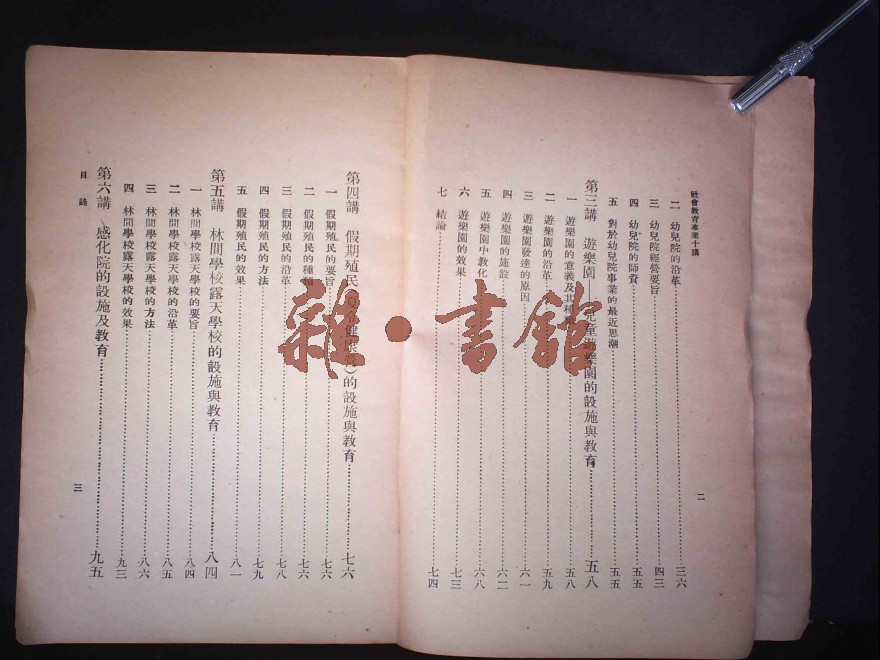 社會教育事業十講
二 幼兒院的沿革……三六
三 幼兒院經營要旨……四三
四 幼兒院的師資……五五
五 對於幼兒院事業的最近思潮……五五
第三講 遊樂園——兒童遊樂園的設施與教育……五八
一 遊樂園的意義及其種……五八
二 遊樂園的沿革……五九
三 遊樂園發達的原因……六一
四 遊樂園的施設……六二
五 遊樂園中教化……六八
六 遊樂園的效果……七三
七 結論……七四
二
第四講 假期殖民(健康)的設施與教育……七六
一 假期殖民的要旨……七六
二 假期殖民的種類……七六
三 假期殖民的沿革……七八
四 假期殖民的方法……七九
五 假期殖民的效果……八一
第五講 林間學校露天學校的設施與教育……八四
一 林間學校露天學校的要旨……八四
二 林間學校露天學校的沿革……八五
三 林間學校露天學校的方法……八六
四 林間學校露天學校的效果……九三
第六講 感化院的設施及教育……九五
目錄
三
雜·書館